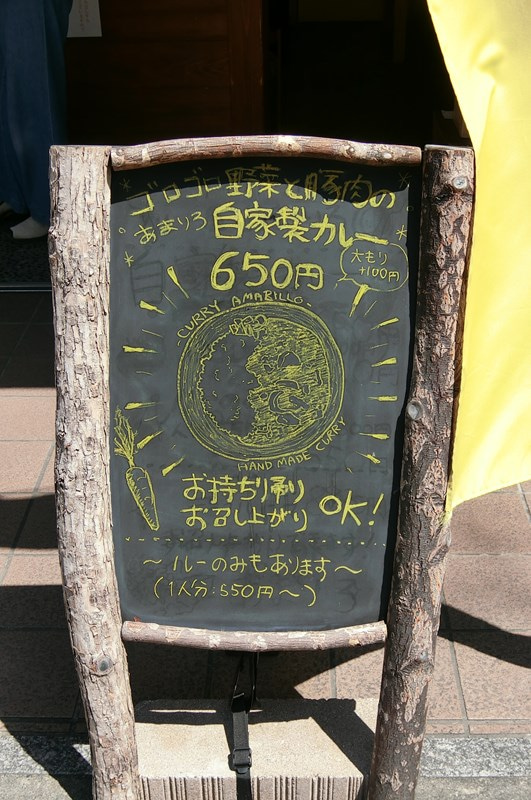 ゴロゴロ野菜と豚肉の
あまりろ 自家製カレー
650円
大もり
+100円
CURRY AMARILLO
HAND MADE CURRY
お持ち帰り
お召し上がり OK!
〜ルーのみもあります〜
(1人分:550円〜)